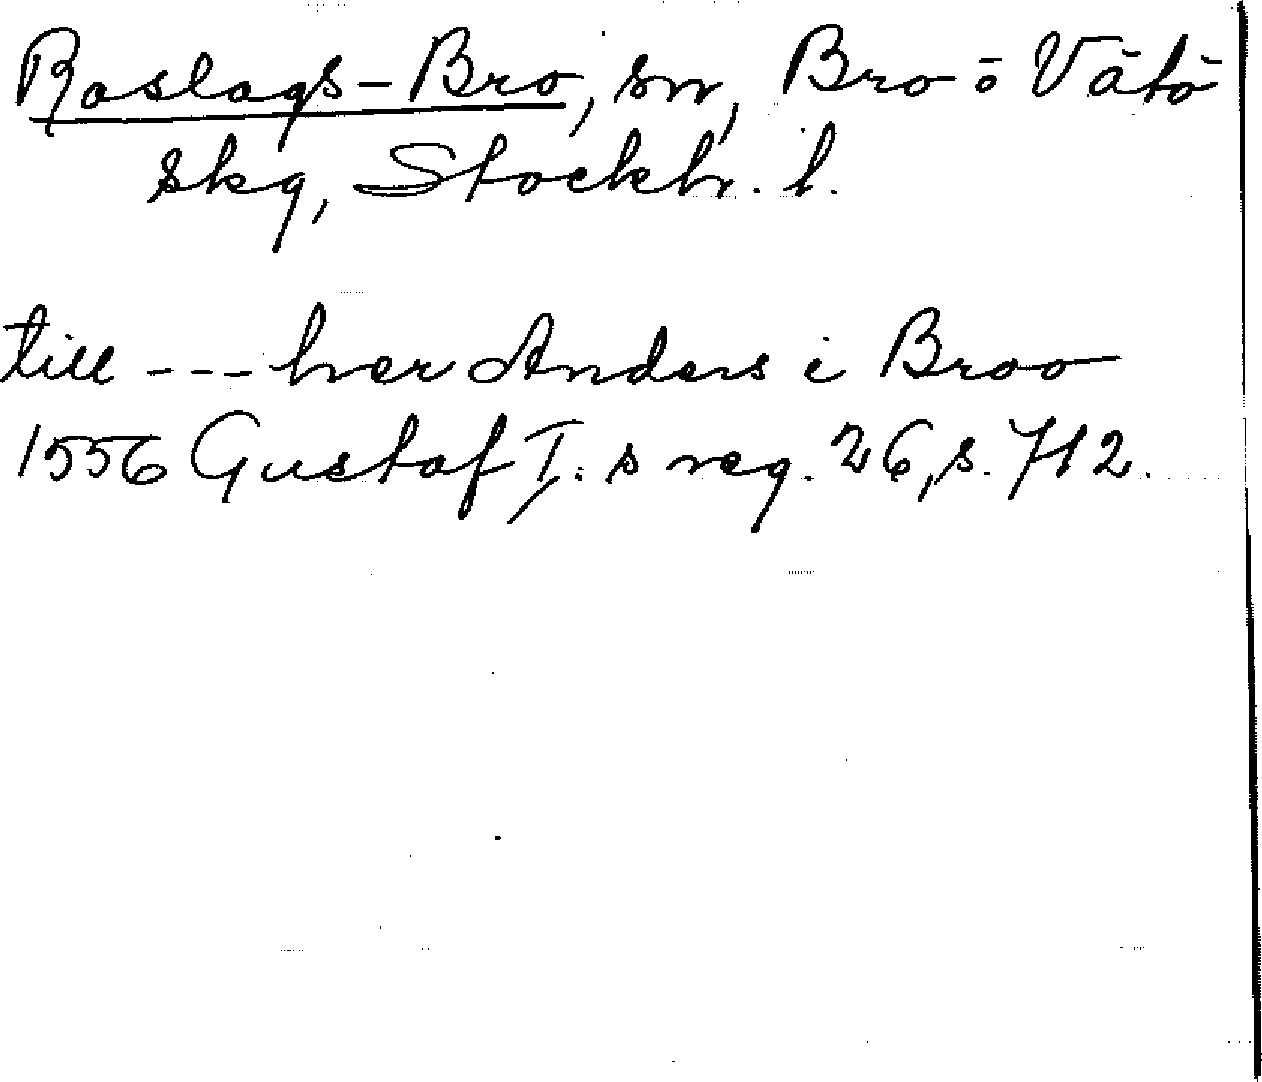 Roslags-Bro, sn, Bro o Vätö
skg, Stockh. l.
till --- her Anders i Broo
1556 Gustaf I:s reg. 26, s. 712.